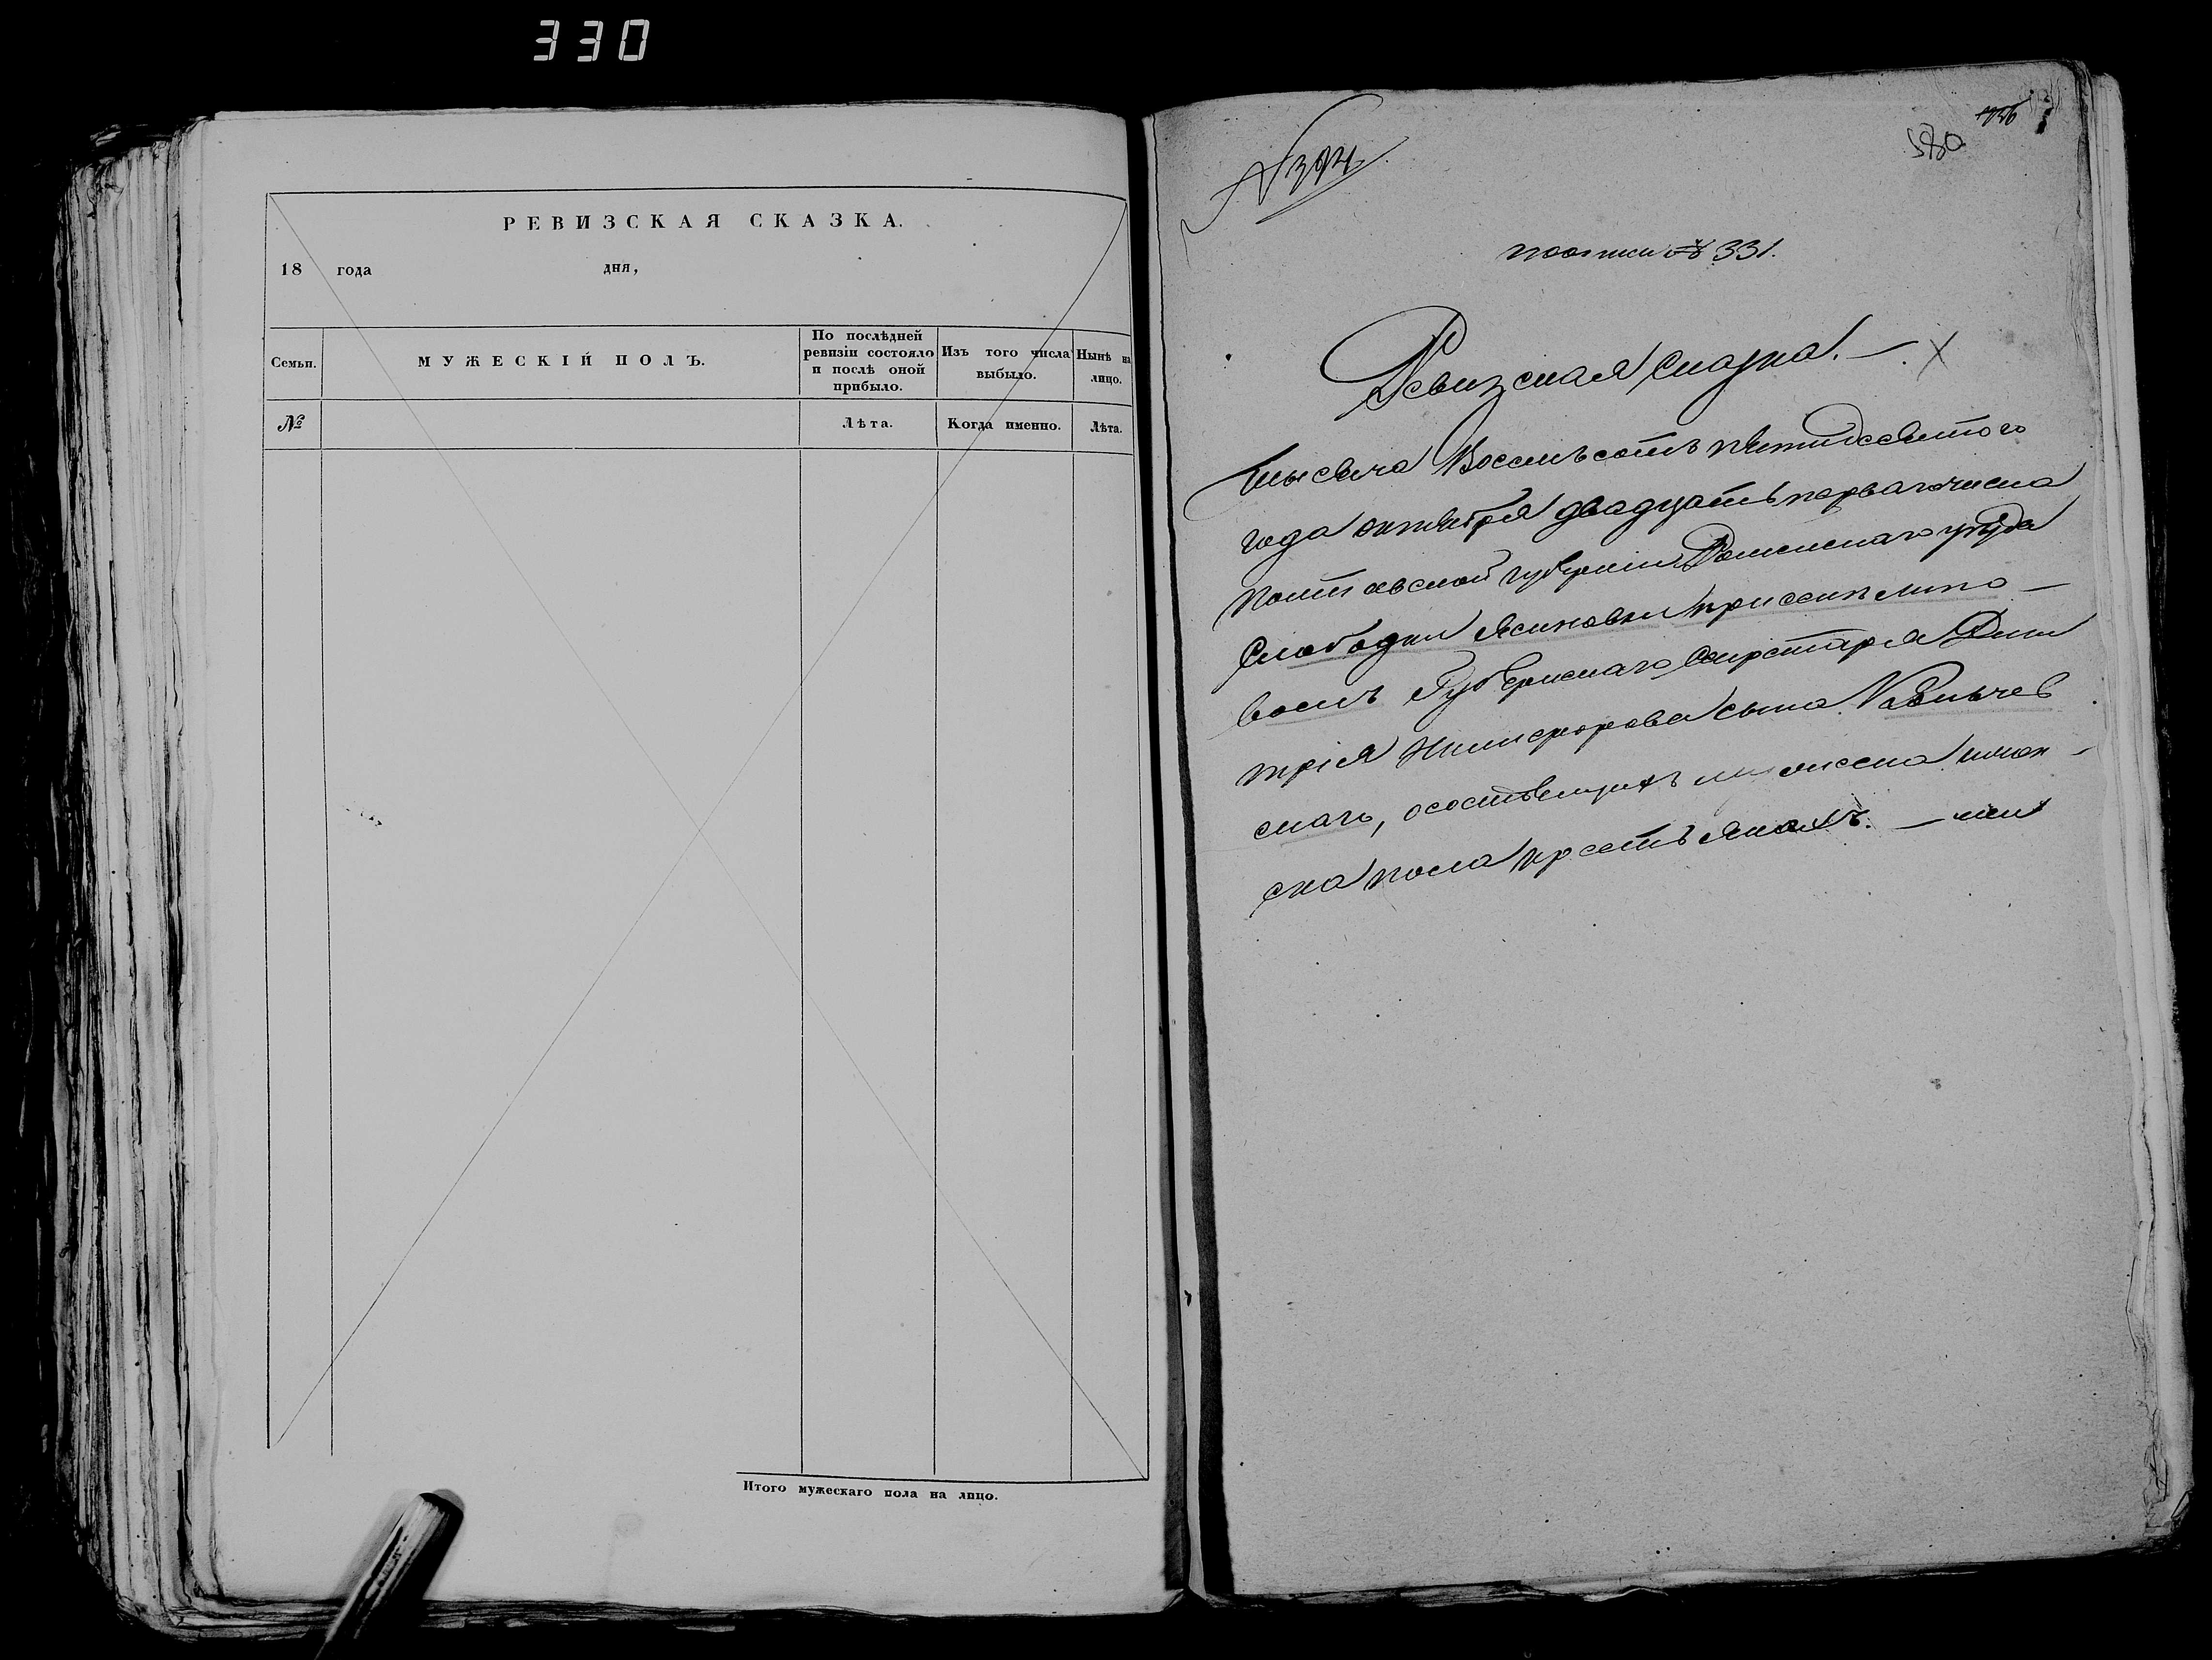 330
РЕВИЗСКАЯ СКАЗКА.
18 года дня,
Семьи.
МУЖЕСКІЙ ПОЛЪ.
По послѣдней ревизіи состояло и послѣ оной прибыло.
Изъ того числа выбыло.
Нынѣ на лицо.
№
Лѣта.
Когда именно.
Лѣта.
Итого мужескаго пола на лицо.
580
331.
Ревизская Сказка.
тысяча Восемьсотъ пятидесятого
года октября двадцать первого числа
Полтавской губерніи Роменскаго уѣзда
Слободки Ясиновки
Губернскаго Секретаря Дми
трія Никифорова сына
скаго, о состоящихъ мужеска и жен
ска пола крестьянахъ.